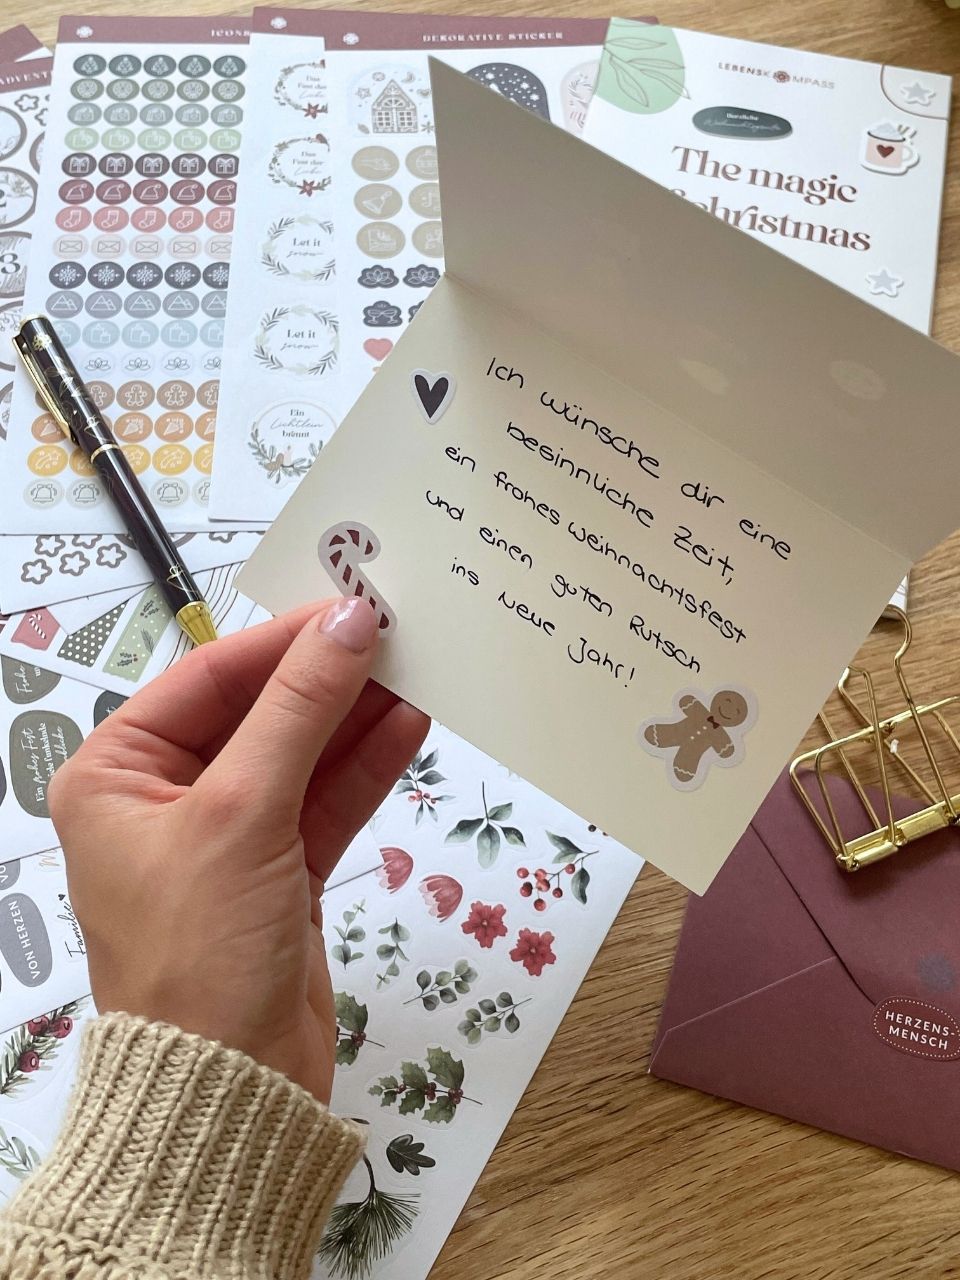 ADVENT
ICONS
DEKORATIVE STICKER
LEBENSKOMPASS
Herzliche
Weihnachtsgrüße
The magic
christmas
Das
Fest der
Liebe
Das
Fest der
Liebe
Let it
snow
Let it
snow
Ein
Lichtlein
brennt
3
Ich wünsche dir eine
besinnliche Zeit,
ein frohes Weihnachtsfest
und einen guten Rutsch
ins Neue Jahr!
Frohe
Ein frohes Fest
VON HERZEN
Familie
HERZENS-
MENSCH